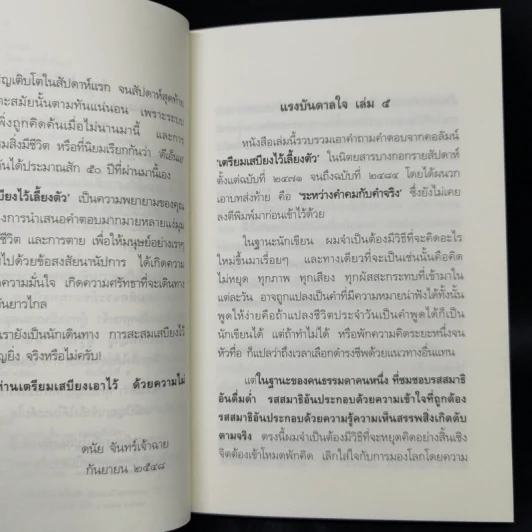 ญเติบโตในสัปดาห์แรก จนสัปดาห์สุดท้าย
ตะสมัยนั้นตามทันแน่นอน เพราะระบบ
พิ่งถูกคิดค้นเมื่อไม่นานมานี้ และการ
มสิ่งมีชีวิต หรือที่นิยมเรียกกันว่า 'ดีเอ็นเอ'
ันได้ประมาณสัก ๕๐ ปีที่ผ่านมานี้เอง
บียงไว้เลี้ยงตัว' เป็นความพยายามของคุณ
งการนำเสนอคำตอบมากมายหลายแง่มุม
ชีวิต และการตาย เพื่อให้มนุษย์อย่างเราๆ
ไปด้วยข้อสงสัยนานัปการ ได้เกิดความ
ความมั่นใจ เกิดความศรัทธาที่จะเดินทาง
ันยาวไกล
เรายังเป็นนักเดินทาง การสะสมเสบียงไว้
ญยิ่ง จริงหรือไม่ครับ!
ท่านเตรียมเสบียงเอาไว้ ด้วยความไม่
ดนัย จันทร์เจ้าฉาย
กันยายน ๒๕๔๘
แรงบันดาลใจ เล่ม ๕
หนังสือเล่มนี้รวบรวมเอาคำถามคำตอบจากคอลัมน์
'เตรียมเสบียงไว้เลี้ยงตัว' ในนิตยสารบางกอกรายสัปดาห์
ตั้งแต่ฉบับที่ ๒๔๗๑ จนถึงฉบับที่ ๒๔๘๔ โดยได้ผนวก
เอาบทส่งท้าย คือ 'ระหว่างคำคมกับคำจริง' ซึ่งยังไม่เคย
ลงตีพิมพ์มาก่อนเข้าไว้ด้วย
ในฐานะนักเขียน ผมจำเป็นต้องมีวิธีที่จะคิดอะไร
ใหม่ขึ้นมาเรื่อยๆ และทางเดียวที่จะเป็นเช่นนั้นคือคิด
ไม่หยุด ทุกภาพ ทุกเสียง ทุกผัสสะกระทบที่เข้ามาใน
แต่ละวัน อาจถูกแปลงเป็นคำที่มีความหมายน่าฟังได้ทั้งนั้น
พูดให้ง่ายคือถ้าแปลงชีวิตประจำวันเป็นคำพูดได้ก็เป็น
นักเขียนได้ แต่ถ้าทำไม่ได้ หรือพักความคิดระยะหนึ่งจน
หัวทื่อ ก็แปลว่าถึงเวลาเลือกดำรงชีพด้วยแนวทางอื่นแทน
แต่ในฐานะของคนธรรมดาคนหนึ่ง ที่ชมชอบรสสมาธิ
อันดื่มด่ำ รสสมาธิอันประกอบด้วยความเข้าใจที่ถูกต้อง
รสสมาธิอันประกอบด้วยความรู้ความเห็นสรรพสิ่งเกิดดับ
ตามจริง ตรงนี้ผมจำเป็นต้องมีวิธีที่จะหยุดคิดอย่างสิ้นเชิง
จิตต้องเข้าโหมดพักคิด เลิกใส่ใจกับการมองโลกโดยความ